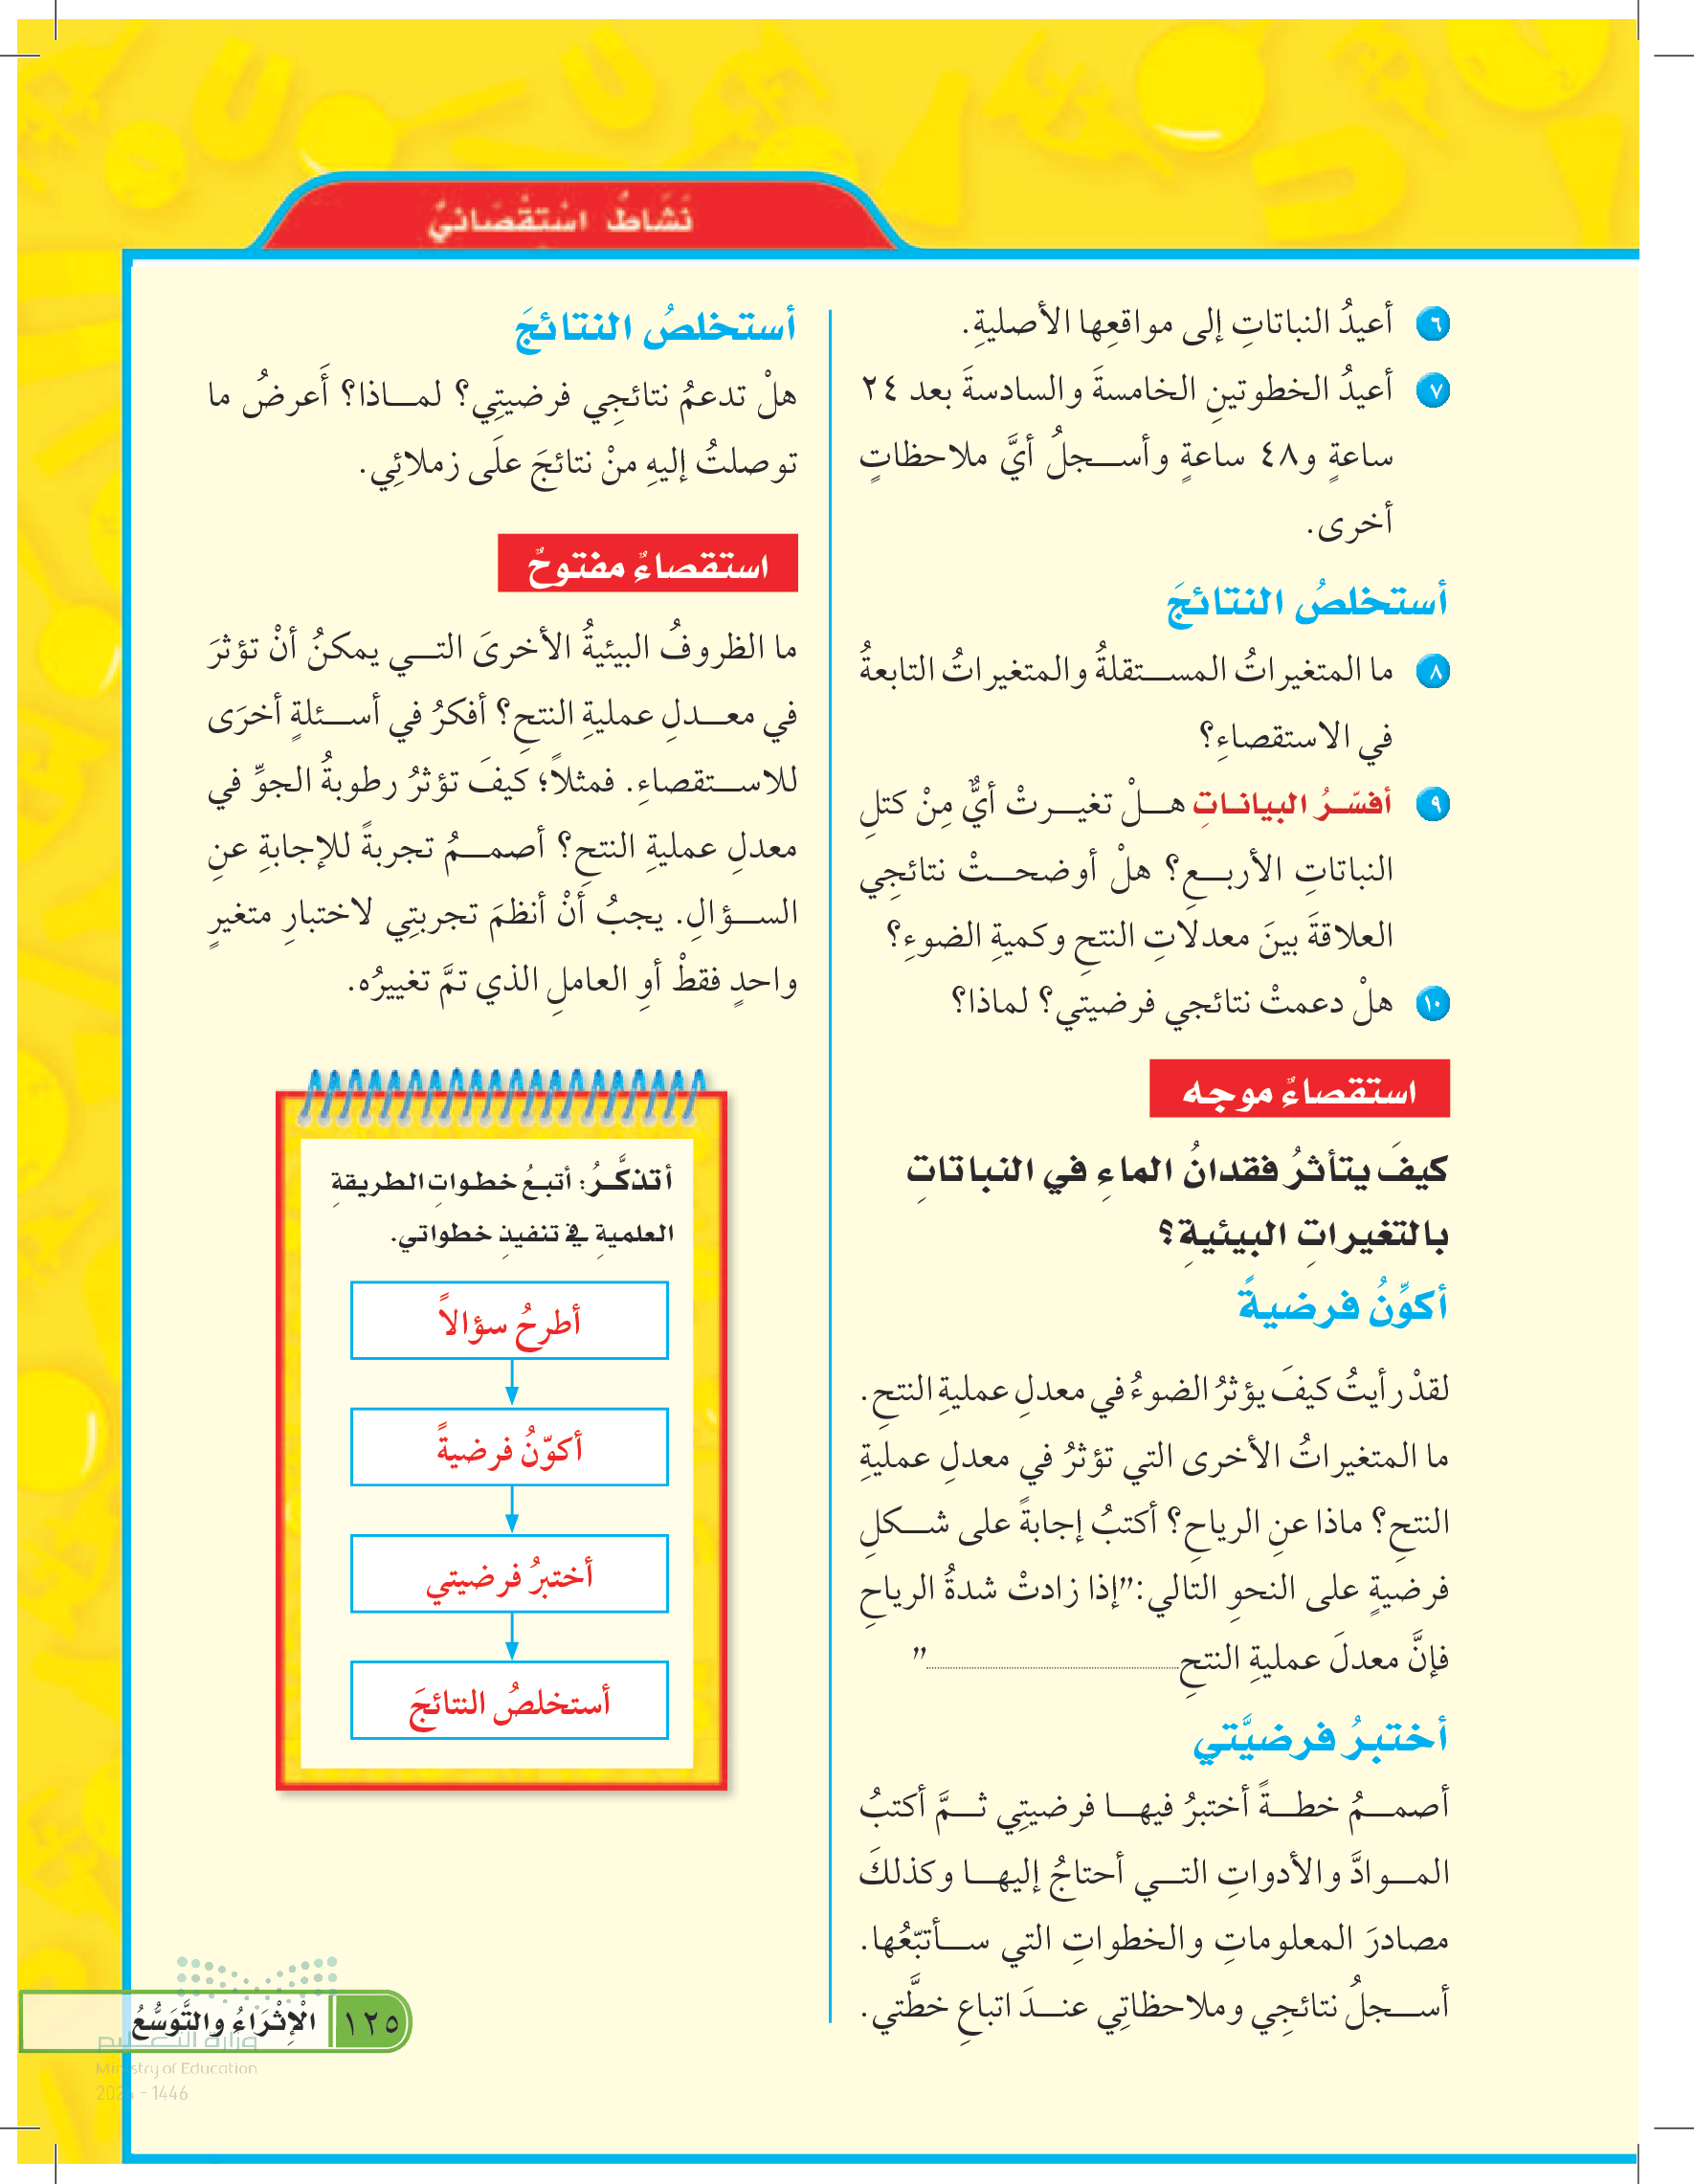 نَشَاطٌ اسْتِقْصَائيٌّ
٦ أعيدُ النباتاتِ إلى مواقعِها الأصليةِ.
٧ أعيدُ الخطوتينِ الخامسةَ والسادسةَ بعد ٢٤
ساعةٍ و٤٨ ساعةٍ وأسجلُ أيَّ ملاحظاتٍ
أخرى.
أستخلصُ النتائجَ
٨ ما المتغيراتُ المستقلةُ والمتغيراتُ التابعةُ
في الاستقصاءِ؟
٩ أفسّرُ البياناتِ هلْ تغيرتْ أيٌّ مِنْ كتلِ
النباتاتِ الأربعِ؟ هلْ أوضحتْ نتائجِي
العلاقةَ بينَ معدلاتِ النتحِ وكميةِ الضوءِ؟
١٠ هلْ دعمتْ نتائجي فرضيتي؟ لماذا؟
استقصاءٌ موجه
كيفَ يتأثرُ فقدانُ الماءِ في النباتاتِ
بالتغيراتِ البيئيةِ؟
أكوِّنُ فرضيةً
لقدْ رأيتُ كيفَ يؤثرُ الضوءُ في معدلِ عمليةِ النتحِ.
ما المتغيراتُ الأخرى التي تؤثرُ في معدلِ عمليةِ
النتحِ؟ ماذا عنِ الرياحِ؟ أكتبُ إجابةً على شكلِ
فرضيةٍ على النحوِ التالي:"إذا زادتْ شدةُ الرياحِ
فإنَّ معدلَ عمليةِ النتحِ ........................ "
أختبرُ فرضيَّتي
أصممُ خطةً أختبرُ فيها فرضيتِي ثمَّ أكتبُ
الموادَّ والأدواتِ التي أحتاجُ إليها وكذلكَ
مصادرَ المعلوماتِ والخطواتِ التي سأتبّعُها.
أسجلُ نتائجِي وملاحظاتِي عندَ اتباعِ خطَّتي.
أستخلصُ النتائجَ
هلْ تدعمُ نتائجِي فرضيتِي؟ لماذا؟ أَعرضُ ما
توصلتُ إليهِ منْ نتائجَ علَى زملائِي.
استقصاءٌ مفتوحٌ
ما الظروفُ البيئيةُ الأخرىَ التي يمكنُ أنْ تؤثرَ
في معدلِ عمليةِ النتحِ؟ أفكرُ في أسئلةٍ أخرَى
للاستقصاءِ. فمثلاً؛ كيفَ تؤثرُ رطوبةُ الجوِّ في
معدلِ عمليةِ النتحِ؟ أصممُ تجربةً للإجابةِ عنِ
السؤالِ. يجبُ أنْ أنظمَ تجربتِي لاختبارِ متغيرٍ
واحدٍ فقطْ أوِ العاملِ الذي تمَّ تغييرُه.
أتذكَّرُ: أتبعُ خطواتِ الطريقةِ
العلميةِ في تنفيذِ خطواتي.
أطرحُ سؤالاً
أكوّنُ فرضيةً
أختبرُ فرضيتي
أستخلصُ النتائجَ
١٢٥ الْإِثْرَاءُ والتَّوَسُّعُ
وزارة التعليم
Ministry of Education
2024 - 1446